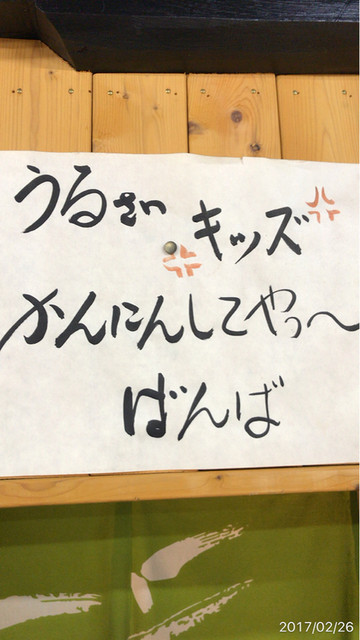 うるさい キッズ
かんにんしてやっ〜
ばんば
2017/02/26